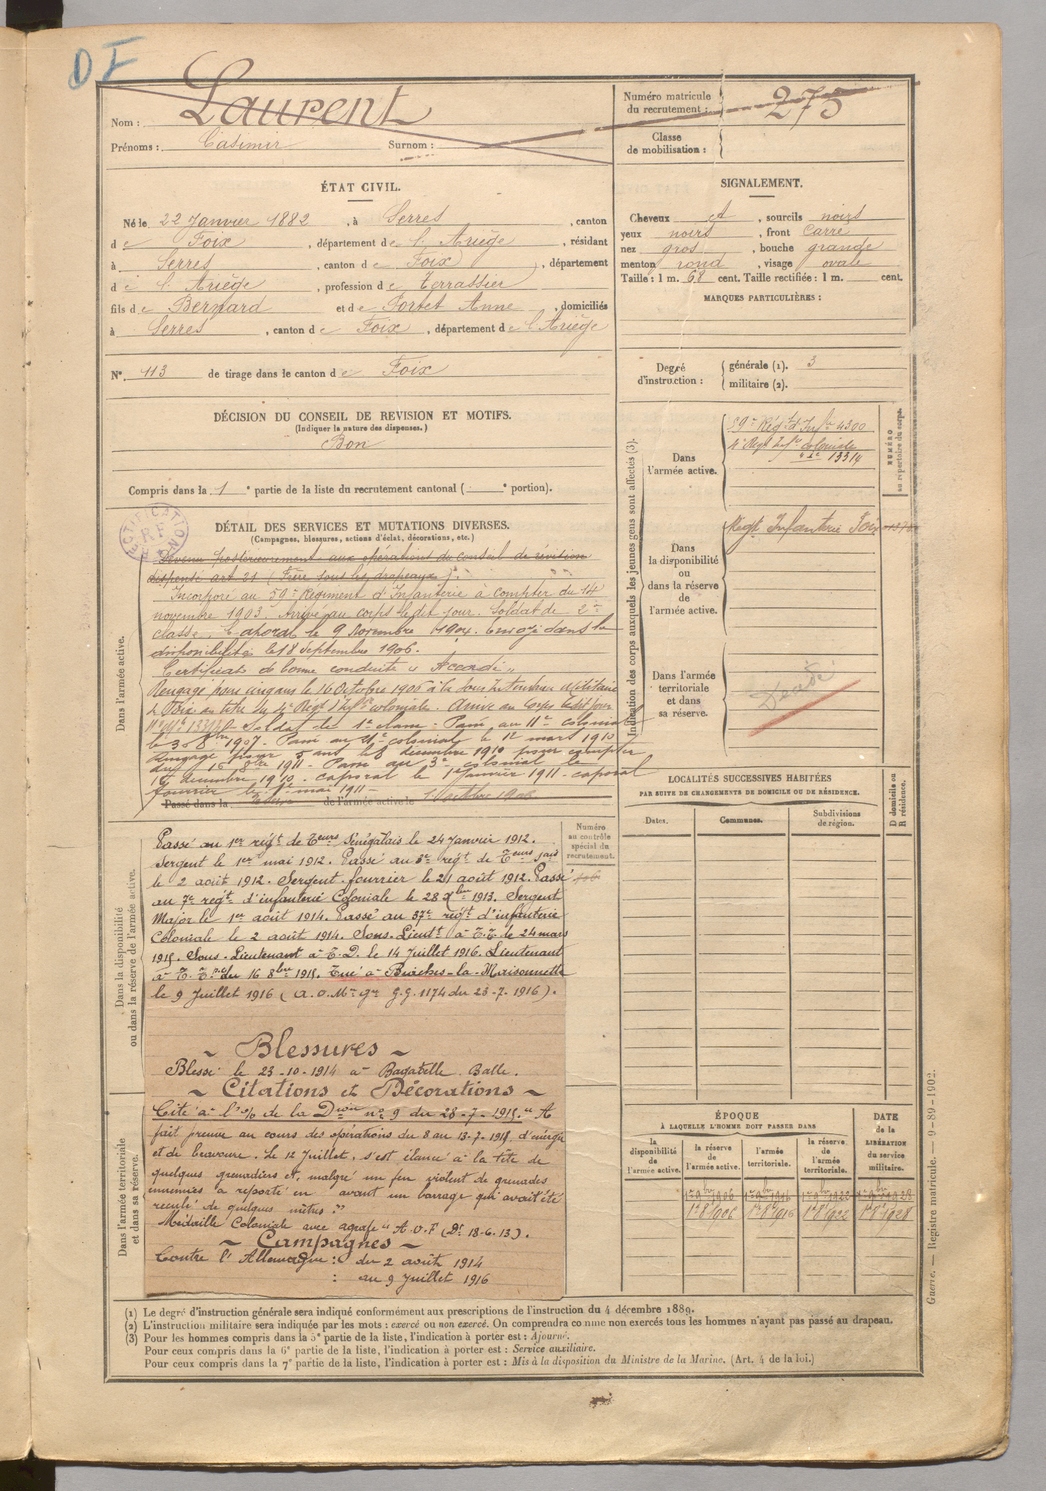 DF
Nom : Laurent
Prénoms : Casimir Surnom :
Numéro matricule du recrutement : 275
Classe de mobilisation :
ÉTAT CIVIL.
Né le 22 Janvier 1882, à Serres, canton
de Foix, département de l'Ariège, résidant
à Serres, canton de Foix, département
de l'Ariège, profession de Terrassier
fils de Bernard et de Fortet Anne, domiciliés
à Serres, canton de Foix, département de l'Ariège
N° 113 de tirage dans le canton de Foix
DÉCISION DU CONSEIL DE REVISION ET MOTIFS.
(Indiquer la nature des dispenses.)
Bon
Compris dans la 1e partie de la liste du recrutement cantonal ( e portion).
SIGNALEMENT.
Cheveux et, sourcils noirs
yeux noirs, front carré
nez gros, bouche grande
menton rond, visage ovale
Taille : 1 m. 68 cent. Taille rectifiée : 1 m. cent.
MARQUES PARTICULIÈRES :
Degré d'instruction : générale (1). 3
militaire (2).
Indication des corps auxquels les jeunes gens sont affectés (3).
NUMÉRO au répertoire du corps.
Dans l'armée active.
59e Régt d'Infie 4300
4e Régt Infie Coloniale
13314
Dans la disponibilité ou dans la réserve de l'armée active.
Régt Infanterie Foix
Dans l'armée territoriale et dans sa réserve.
Décédé
DÉTAIL DES SERVICES ET MUTATIONS DIVERSES.
(Campagnes, blessures, actions d'éclat, décorations, etc.)
Dans l'armée active.
Devenu postérieurement aux opérations du conseil de révision
dispensé art 21 (Frère sous les drapeaux).
Incorporé au 59e Régiment d'Infanterie à compter du 14
novembre 1903. Arrivé au corps le dit jour. Soldat de 2e
classe. Caporal le 9 Novembre 1904. Envoyé dans la
disponibilité le 18 Septembre 1906.
Certificat de bonne conduite "Accordé"
Rengagé pour cinq ans le 16 Octobre 1906 à la Sous Intendance Militaire
de Foix au titre du 4e Régt d'Infie coloniale. Arrivé au Corps le dit jour
Soldat de 1e classe. Passé au 11e colonial
le 30 8bre 1907. Passé au 4e colonial le 12 mars 1910
Rengagé pour 5 ans le 8 décembre 1910 pour compter
du 16 8bre 1911. Passé au 3e colonial le
16 décembre 1910. caporal le 1er janvier 1911. caporal
fourrier le 1er mai 1911
Passé dans la réserve de l'armée active le 1 octobre 1906
Dans la disponibilité ou dans la réserve de l'armée active.
Numéro au contrôle spécial du recrutement.
Passé au 1er régt de Teurs Sénégalais le 24 Janvier 1912.
Sergent le 1er mai 1912. Passé au 3e régt de Teurs Sais
le 2 août 1912. Sergent fourrier le 21 août 1912. Passé
au 7e régt d'infanterie Coloniale le 28 Xbre 1913. Sergent
Major le 1er août 1914. Passé au 37e régt d'infanterie
Coloniale le 2 août 1914. Sous. Lieut à T.T. le 24 mars
1915. Sous. Lieutenant à T.D. le 14 Juillet 1916. Lieutenant
à T.T. du 16 8bre 1915. Tué à Biaches-la-Maisonnette
le 9 Juillet 1916 (A.O.Mre Gre G.G. 1174 du 23-7-1916).
~ Blessures ~
Blessé le 23-10-1914 à Bagatelle. Balle.
~ Citations et Décorations ~
Cité à l'O/ de la Dion n° 9 du 28-7-1915. "A
fait preuve au cours des opérations du 8 au 13-7-1915 d'énergie
et de bravoure. Le 12 Juillet, s'est élancé à la tête de
quelques grenadiers et, malgré un feu violent de grenades
ennemies a reporté en avant un barrage qui avait été
reculé de quelques mètres."
Médaille Coloniale avec agrafe "A.O.F. (Dt 18-6-13).
~ Campagnes ~
Contre l'Allemagne : du 2 août 1914
: au 9 Juillet 1916
Dans l'armée territoriale et dans sa réserve.
LOCALITÉS SUCCESSIVES HABITÉES
PAR SUITE DE CHANGEMENTS DE DOMICILE OU DE RÉSIDENCE.
Dates. Communes. Subdivisions de région. D domicile ou R résidence.
ÉPOQUE
À LAQUELLE L'HOMME DOIT PASSER DANS
la disponibilité de l'armée active. la réserve de l'armée active. l'armée territoriale. la réserve de l'armée territoriale.
DATE de la LIBÉRATION du service militaire.
1er 9bre 1906 1er 9bre 1916 1er 9bre 1922 1er 9bre 1928
1er 8 1906 1er 8 1916 1er 8 1922 1er 8 1928
(1) Le degré d'instruction générale sera indiqué conformément aux prescriptions de l'instruction du 4 décembre 1889.
(2) L'instruction militaire sera indiquée par les mots : exercé ou non exercé. On comprendra comme non exercés tous les hommes n'ayant pas passé au drapeau.
(3) Pour les hommes compris dans la 5e partie de la liste, l'indication à porter est : Ajourné.
Pour ceux compris dans la 6e partie de la liste, l'indication à porter est : Service auxiliaire.
Pour ceux compris dans la 7e partie de la liste, l'indication à porter est : Mis à la disposition du Ministre de la Marine. (Art. 4 de la loi.)
Guerre. — Registre matricule. — 9-89-1902.